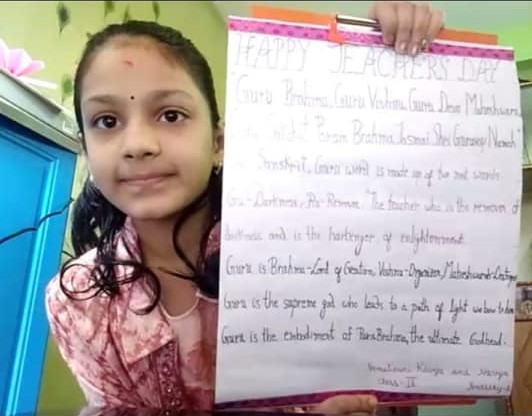 HAPPY TEACHERS DAY
"Guru Brahma, Guru Vishnu Guru Devo Maheshwara,
Param Brahma Tasmai Shri Guravey Namah"
Sanskrit, Guru word is made up of two root words
Gu-Darkness, Ru-Remove. "The teacher who is the remover of
darkness and is the harbinger of enlightenment.
Guru is Brahma-Lord of Creation, Vishnu-Organizer, Maheshwara-Destroyer
Guru is the supreme god who leads to a path of light we bow to him
Guru is the embodiment of Para Brahma, the ultimate Godhead.
Kavya and
Class-II